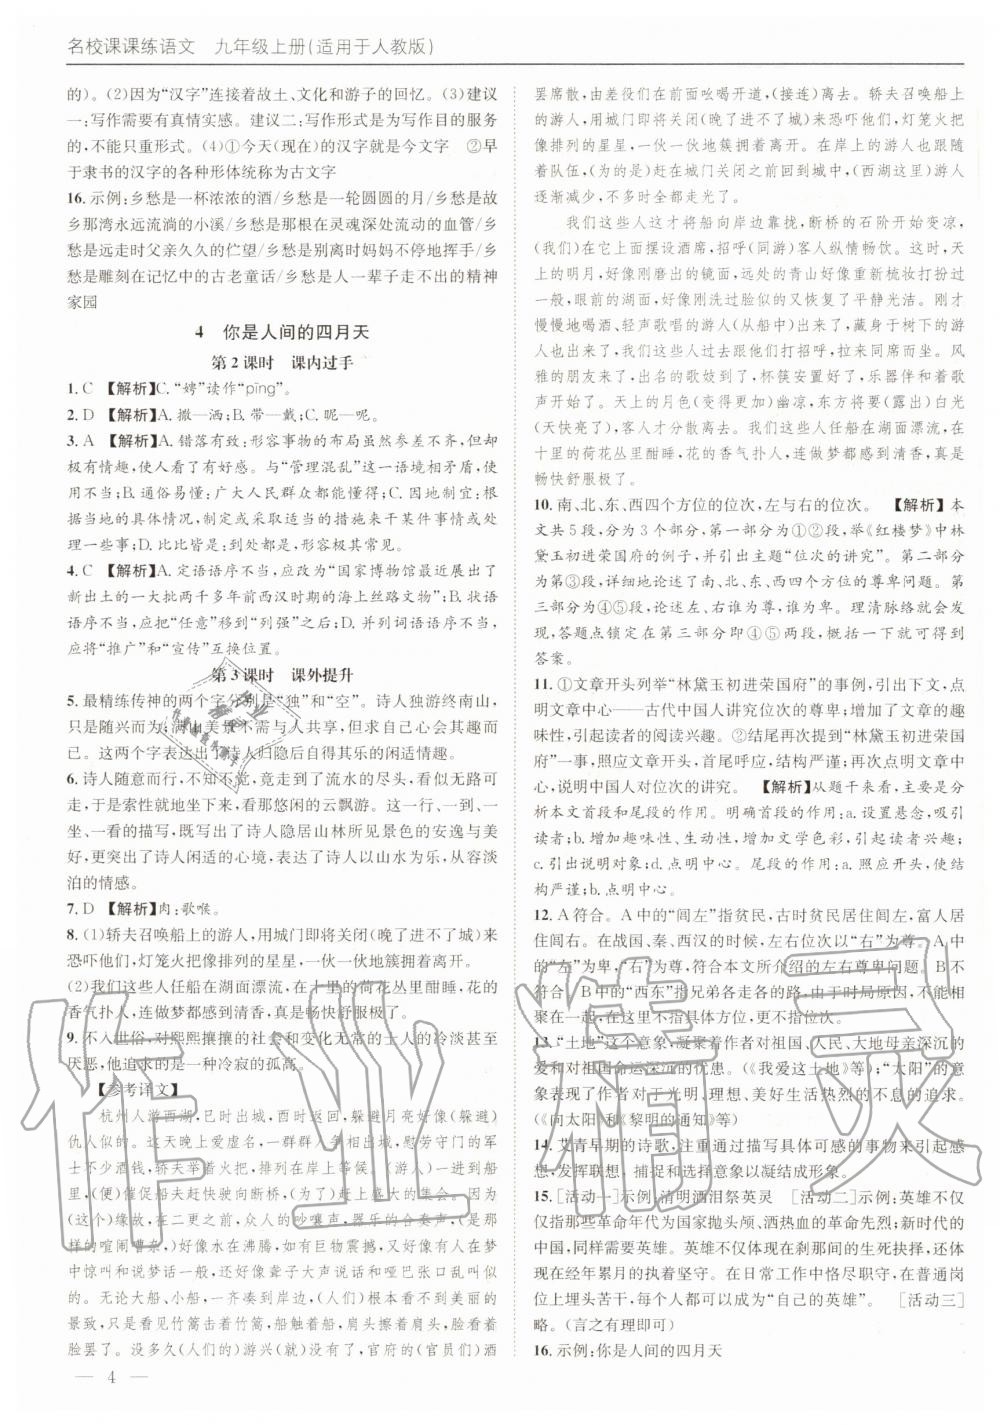 名校课课练语文 九年级上册(适用于人教版)
的)。(2)因为“汉字”连接着故土、文化和游子的回忆。(3)建议
一:写作需要有真情实感。建议二:写作形式是为写作目的服务
的,不能只重形式。(4)①今天(现在)的汉字就是今文字 ②早
于隶书的汉字的各种形体统称为古文字
16. 示例:乡愁是一杯浓浓的酒/乡愁是一轮圆圆的月/乡愁是故
乡那湾永远流淌的小溪/乡愁是根在灵魂深处流动的血管/乡
愁是远走时父亲久久的伫望/乡愁是别离时妈妈不停地挥手/乡
愁是雕刻在记忆中的古老童话/乡愁是人一辈子走不出的精神
家园
4 你是人间的四月天
第2课时 课内过手
1. C 【解析】C.“娉”读作“pīng”。
2. D 【解析】A. 撒—洒;B. 带—戴;C. 昵—呢。
3. A 【解析】A. 错落有致:形容事物的布局虽然参差不齐,但却
极有情趣,使人看了有好感。与“管理混乱”这一语境相矛盾,
使用不当;B. 通俗易懂:广大人民群众都能懂得;C. 因地制宜:根
据当地的具体情况,制定或采取适当的措施来干或者处理
一些事;D. 比比皆是:到处都是,形容极其常见。
4. C 【解析】A. 定语语序不当,应改为“国家博物馆最近展出了
新出土的一大批两千多年前西汉时期的海上丝路文物”;B. 状语
语序不当,应把“任意”移到“列强”之后;D. 并列词语语序不当,应
将“推广”和“宣传”互换位置。
第3课时 课外提升
5. 最精练传神的两个字分别是“独”和“空”。诗人独游终南山,
只是随兴而为;满山美景不需与人共享,但求自己心会其美而
已。这两个字表达出了诗人归隐后自得其乐的闲适情趣。
6. 诗人随意而行,不知不觉,竟走到了流水的尽头,看似无路可
走,于是索性就地坐下来,看那悠闲的云飘游。一行、一到、一坐、
一看的描写,既写出了诗人隐居山林所见景色的安逸与美
好,更写出了诗人闲适的心境,表达了诗人以山水为乐,从容淡
泊的情感。
7. D 【解析】肉:歌喉。
8. (1)轿夫召唤船上的游人,用城门即将关闭(晚了进不了城)来
恐吓他们,灯笼火把像排列的星星,一伙一伙地簇拥着离开。
(2)我们这些人任船在湖面漂流,在十里的荷花丛里酣睡,花的
香气扑人,连做梦都感到清香,真是畅快舒服极了。
9. 不入世俗、对熙熙攘攘的社会和变化无常的士人的冷淡甚至
厌恶,他追求的是一种冷寂的孤高。
【参考译文】
杭州人游西湖,巳时出城,酉时返回,躲避月亮好像(躲避)
仇人似的。这天晚上爱虚名,一群群人争相出城,慰劳守门的军
士不少酒钱,轿夫举着火把,排列在岸上等候。(游人)一进到船
里,(便)催促船夫赶快划向断桥,(为了)赶上那里的集会。因为
(这个)缘故,在二更之前,众人的吵嚷声,器乐的合奏声,(就是这
样的喧闹嘈杂,)好像水在沸腾,如有物体在震撼,又好像人在梦
中惊叫和说梦话一般,还像聋子大声叫和哑巴张口乱叫似
的。无论大船、小船,一齐凑到岸边,(人们)根本看不到美丽的
景致,只看见竹篙打着竹篙,船触着船,肩摩着肩,脸看着
脸罢了。没多久(人们的)游兴(就)没有了,官府的(官员们)酒
罢席散,由差役们在前面吆喝开道,(接连)离去。轿夫召唤船上
的游人,用城门即将关闭(晚了进不了城)来恐吓他们,灯笼火把
像排列的星星,一伙一伙地簇拥着离开。在岸上的游人也随
着队伍,(为的是)赶在城门关闭之前回到城中,(西湖这里)游人
逐渐减少,不多时全都走光了。
我们这些人这才将船向岸边靠拢,断桥的石阶开始变凉,
(我们)在它上面摆设酒席,招呼(同游)客人纵情畅饮。这时,天
上的明月,好像刚磨出的镜面,远处的青山好像重新梳妆打扮过
一般,眼前的湖面,好像刚洗过脸似的又呈现了平静光洁。刚才
慢慢地饮酒、轻声歌唱的游人(从船中)出来了,藏身于树下的游
人也出来了,我们这些人和他们打过招呼,拉来同席而坐。风
雅的朋友来了,出名的歌妓到了,杯筷安置好了,乐器伴和着歌
声开始了。天上的月色(变得更加)幽凉,东方将要(露出)白光
(天快亮了),客人才分散离去。我们这些人任船在湖面漂流,在
十里的荷花丛里酣睡,花的香气扑人,连做梦都感到清香,真是
畅快舒服极了。
10. 南、北、东、西四个方位的位次,左与右的位次。 【解析】本
文共5段,分为3个部分,第一部分为①②段,举《红楼梦》中林
黛玉初进荣国府的例子,并引出主题“位次的讲究”。第二部分
为第③段,详细地论述了南、北、东、西四个方位的尊卑问题。第
三部分为④⑤段,论述左、右谁为尊,谁为卑。理清脉络就会发
现,答题点锁定在第三部分即④⑤两段,概括出来就可得到
答案。
11. ①文章开头列举“林黛玉初进荣国府”的事例,引出话题,点
明文章中心——古代中国人讲究位次的尊卑;增添了文章的趣
味性,引起读者的阅读兴趣。②结尾再次写到“林黛玉进荣国
府”一事,照应文章开头,首尾呼应,结构严谨;再次点明文章中
心,说明中国人对位次的讲究。 【解析】从题干来看,主要是分
析本文首段和尾段的作用。首段的作用有:a.设置悬念,吸引
读者;b.增加趣味性、生动性,增加文学色彩,引起读者兴趣;
c.引出说明对象;d.点明中心。尾段的作用:a.照应开头,使结
构严谨;b.点明中心。
12. A符合。A中的“闾左”指贫民,古时贫民居住闾左,富人居
住闾右。在战国、秦、西汉的时候,左右位次以“右”为尊。A中
的“左”为卑,“右”为尊,符合本文所介绍的左右尊卑问题。B不
符合。B中的“西东”指兄弟各走各的路,由于时局原因,不能相
聚在一起,在这里不指具体方位,更不指位次。
13. “土地”这个意象,凝聚着作者对祖国、人民、大地母亲深沉的
爱和对祖国命运深沉的忧患。(《我爱这土地》等);“太阳”的意
象表现了作者对于光明、理想、美好生活热烈的不息的追求。
(《向太阳》和《黎明的通知》等)
14. 艾青早期的诗歌,注重通过描写具体可感的事物来引起感
想,发挥联想,捕捉和选择意象以凝结成形象。
15. [活动一]示例:清明洒泪祭英灵 [活动二]示例:英雄不仅
仅指那些革命年代为国家抛头颅、洒热血的革命先烈;新时代的
中国,同样需要英雄。英雄不仅体现在刹那间的生死抉择,更体
现在经年累月的执着坚守。在日常工作中恪尽职守,在普通岗
位上埋头苦干,每个人都可以成为“自己的英雄”。 [活动三]
略。(言之有理即可)
16. 示例:你是人间的四月天
4
作业精灵